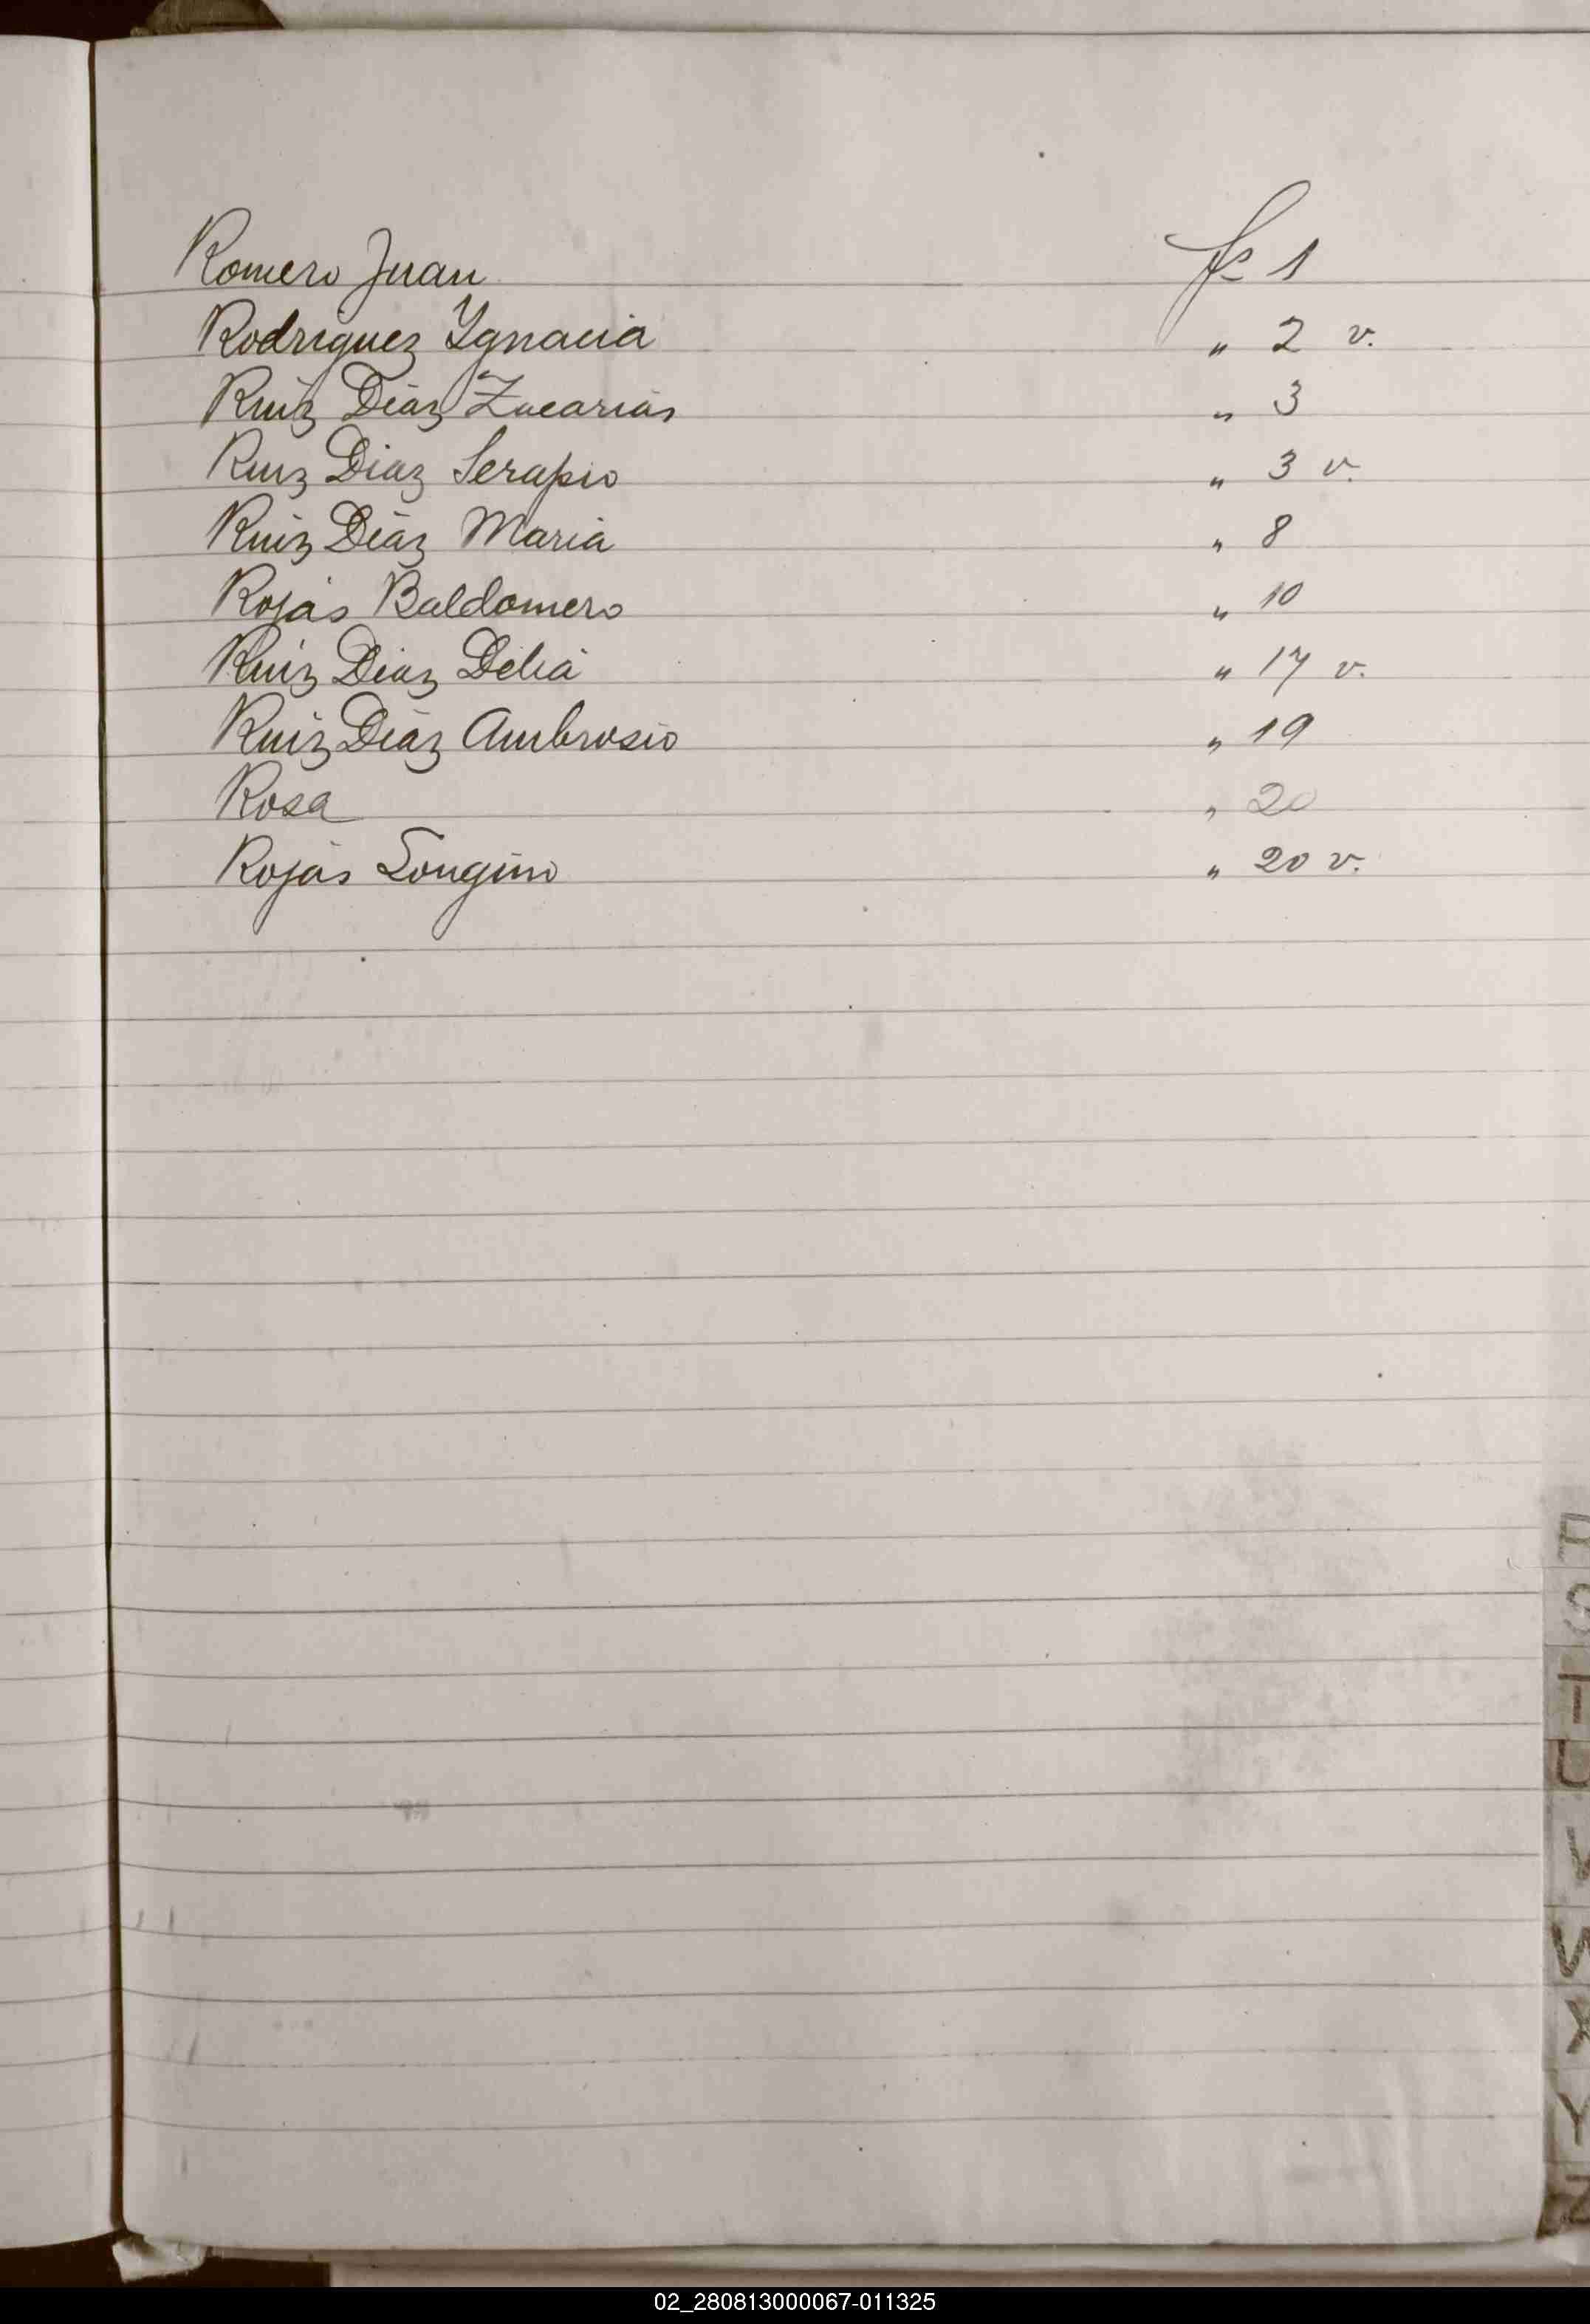 Romero Juan fs 1
Rodriguez Ygnacia " 2 v.
Ruiz Diaz Zacarias " 3
Ruiz Diaz Serapio " 3 v.
Ruiz Diaz Maria " 8
Rojas Baldomero " 10
Ruiz Diaz Delia " 17 v.
Ruiz Diaz Ambrosio " 19
Rosa " 20
Rojas Longino " 20 v.
R
S
T
U
V
W
X
Y
Z
02_280813000067-011325